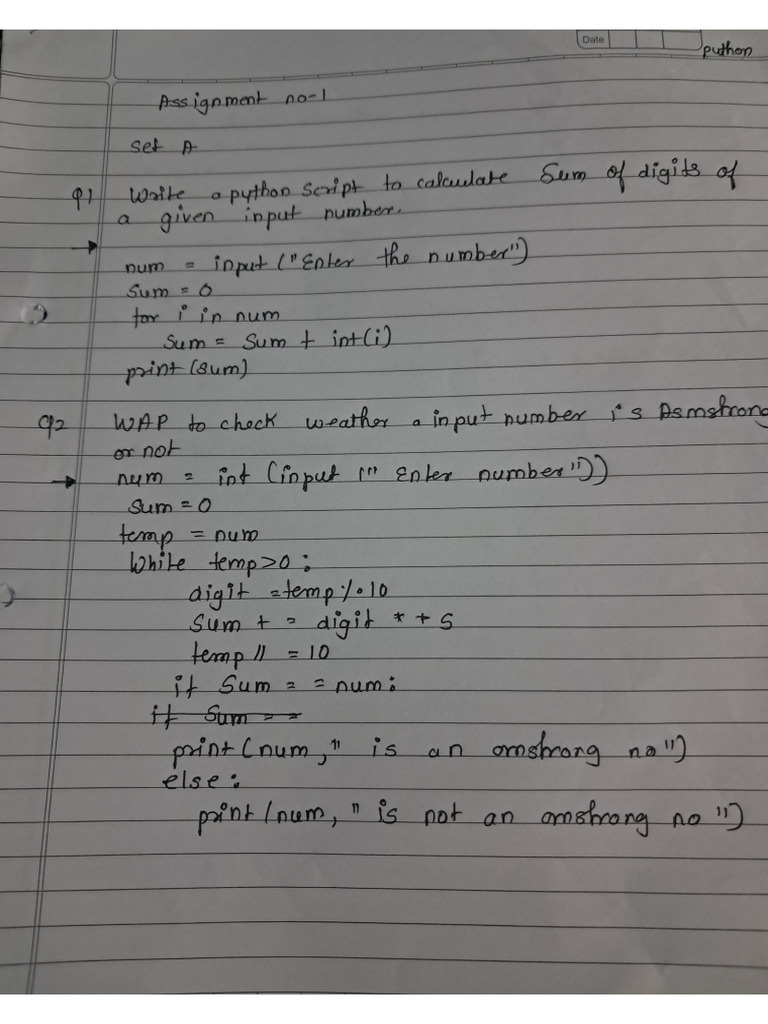 Date
python
Assignment no-1
Set A
Q1 Write a python script to calculate Sum of digits of
a given input number.
→
num = input ("Enter the number")
Sum = 0
for i in num
Sum = Sum + int(i)
print (sum)
Q2 WAP to check weather a input number is Asmstrong
or not
→ num = int (input ("Enter number"))
Sum = 0
temp = num
While temp>0:
digit = temp % 10
Sum + = digit * + 5
temp // = 10
if Sum = = num:
if Sum = =
print (num, " is an omstrong no")
else:
print (num, " is not an omstrong no ")